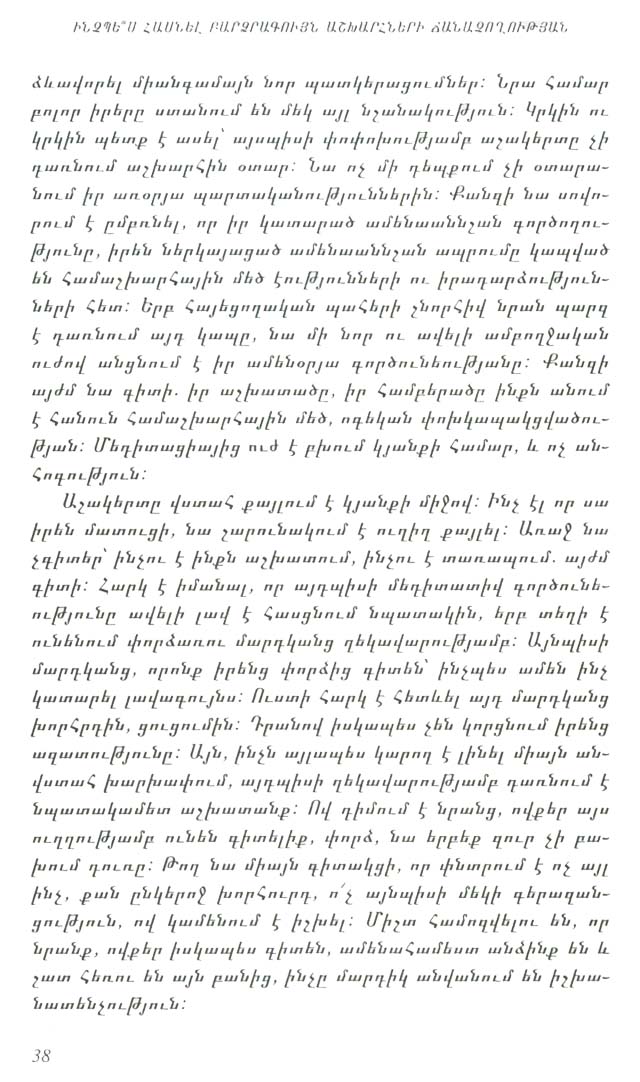 ԻՆՉՊԵ՞Ս ՀԱՍՆԵԼ ԲԱՐՁՐԱԳՈՒՅՆ ԱՇԽԱՐՀՆԵՐԻ ՃԱՆԱՉՈՂՈՒԹՅԱՆ
ձևավորել միանգամայն նոր պատկերացումներ։ Նրա համար
բոլոր իրերը ստանում են մեկ այլ նշանակություն։ Կրկին ու
կրկին պետք է ասել՝ այսպիսի փոփոխությամբ աշակերտը չի
դառնում աշխարհին օտար։ Նա ոչ մի դեպքում չի օտարա-
նում իր առօրյա պարտականություններին։ Քանզի նա սովո-
րում է ըմբռնել, որ իր կատարած ամենաաննշան գործողու-
թյունը, իրեն ներկայացած ամենաաննշան ապրումը կապված
են համաշխարհային մեծ էությունների ու իրադարձություն-
ների հետ։ Երբ հայեցողական պահերի շնորհիվ նրան պարզ
է դառնում այդ կապը, նա մի նոր ու ավելի ամբողջական
ուժով անցնում է իր ամենօրյա գործունեությանը։ Քանզի
այժմ նա գիտի. իր աշխատածը, իր համբերածը ինքն անում
է հանուն համաշխարհային մեծ, ոգեկան փոխկապակցվածու-
թյան։ Մեդիտացիայից ուժ է բխում կյանքի համար, և ոչ ան-
հոգություն։
Աշակերտը վստահ քայլում է կյանքի միջով։ Ինչ էլ որ սա
իրեն մատուցի, նա շարունակում է ուղիղ քայլել։ Առաջ նա
չգիտեր՝ ինչու է ինքն աշխատում, ինչու է տառապում. այժմ
գիտի։ Հարկ է իմանալ, որ այդպիսի մեդիտատիվ գործունե-
ությունը ավելի լավ է հասցնում նպատակին, երբ տեղի է
ունենում փորձառու մարդկանց ղեկավարությամբ։ Այնպիսի
մարդկանց, որոնք իրենց փորձից գիտեն՝ ինչպես ամեն ինչ
կատարել լավագույնս։ Ուստի հարկ է հետևել այդ մարդկանց
խորհրդին, ցուցումին։ Դրանով իսկապես չեն կորցնում իրենց
ազատությունը։ Այն, ինչն այլապես կարող է լինել միայն ան-
վստահ խարխափում, այդպիսի ղեկավարությամբ դառնում է
նպատակամետ աշխատանք։ Ով դիմում է նրանց, ովքեր այս
ուղղությամբ ունեն գիտելիք, փորձ, նա երբեք զուր չի բա-
խում դուռը։ Թող նա միայն գիտակցի, որ փնտրում է ոչ այլ
ինչ, քան ընկերոջ խորհուրդ, ո՛չ այնպիսի մեկի գերազան-
ցություն, ով կամենում է իշխել։ Միշտ համոզվելու են, որ
նրանք, ովքեր իսկապես գիտեն, ամենահամեստ անձինք են և
շատ հեռու են այն բանից, ինչը մարդիկ անվանում են իշխա-
նատենչություն։
38